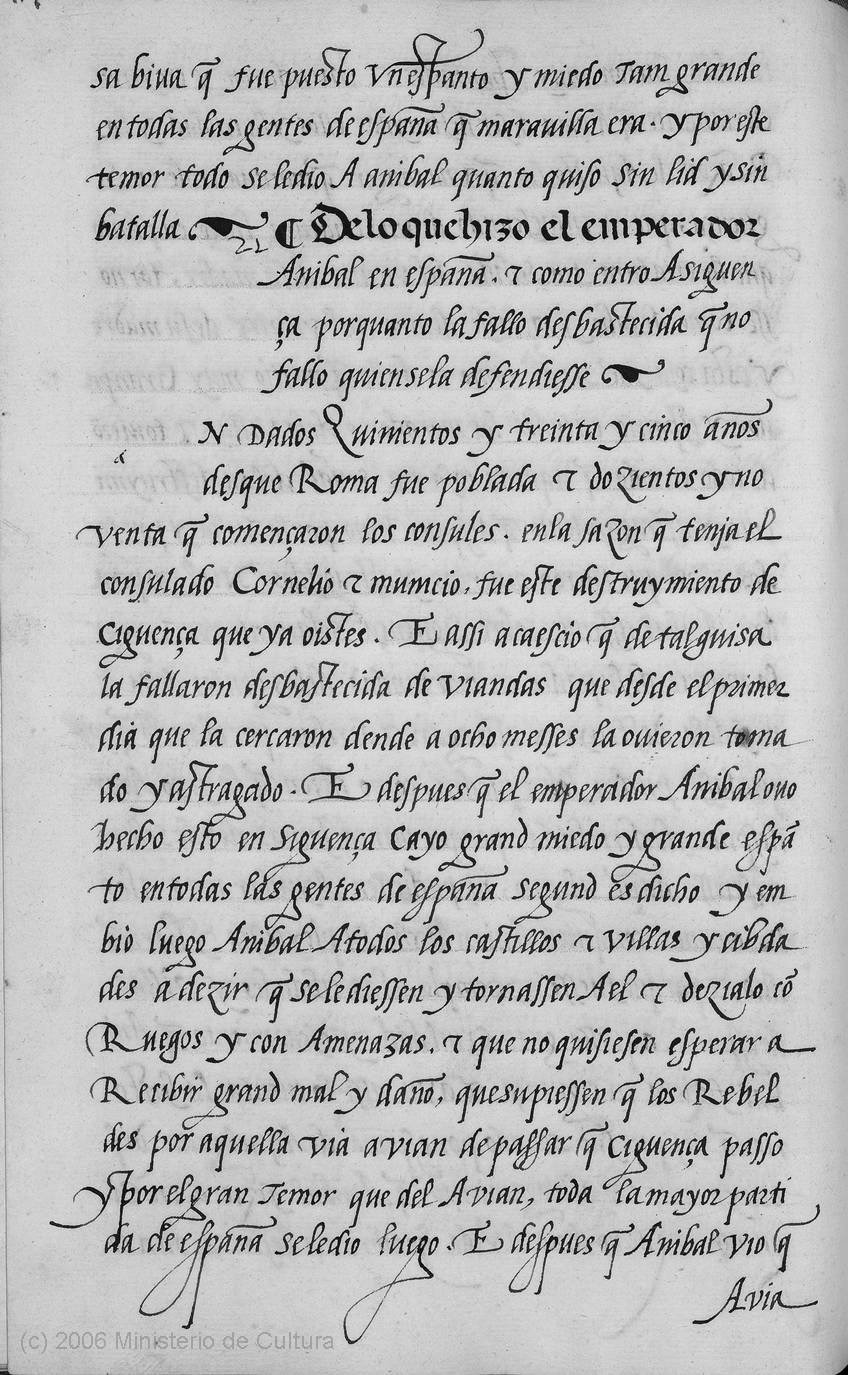 sa biua q̃ fue puesto vn espanto y miedo Tam grande
en todas las gentes de españa q̃ marauilla era. y por este
temor todo se le dio A anibal quanto quiso sin lid y sin
batalla ¶ De lo que hizo el emperador
Anibal en españa. ⁊ como entro A siguen
ça por quanto la fallo desbastecida q̃ no
fallo quien se la defendiesse
N Dados Quinientos y treinta y cinco años
a
desque Roma fue poblada ⁊ dozientos y no
venta q̃ començaron los consules. en la sazon q̃ tenja el
consulado Cornelio ⁊ mumcio, fue este destruymiento de
Ciguença que ya oistes. E assi acaescio q̃ de tal guisa
la fallaron desbastecida de viandas que desde el primer
dia que la cercaron dende a ocho messes la ouieron toma
do y astragado. E despues q̃ el emperador Anibal ouo
hecho esto en Siguença Cayo grand miedo y grande espã
to en todas las gentes de españa segund es dicho y em
bio luego Anibal A todos los castillos ⁊ villas y cibda
des a dezir q̃ se le diessen y tornassen A el ⁊ dezialo cõ
Ruegos y con Amenazas. ⁊ que no quisiesen esperar a
Recibir grand mal y daño, que supiessen q̃ los Rebel
des por aquella via avian de passar q̃ Ciguença passo
y por el gran Temor que del Avian, toda la mayor parti
da de españa se le dio luego. E despues q̃ Anibal vio q̃
Avia
(c) 2006 Ministerio de Cultura